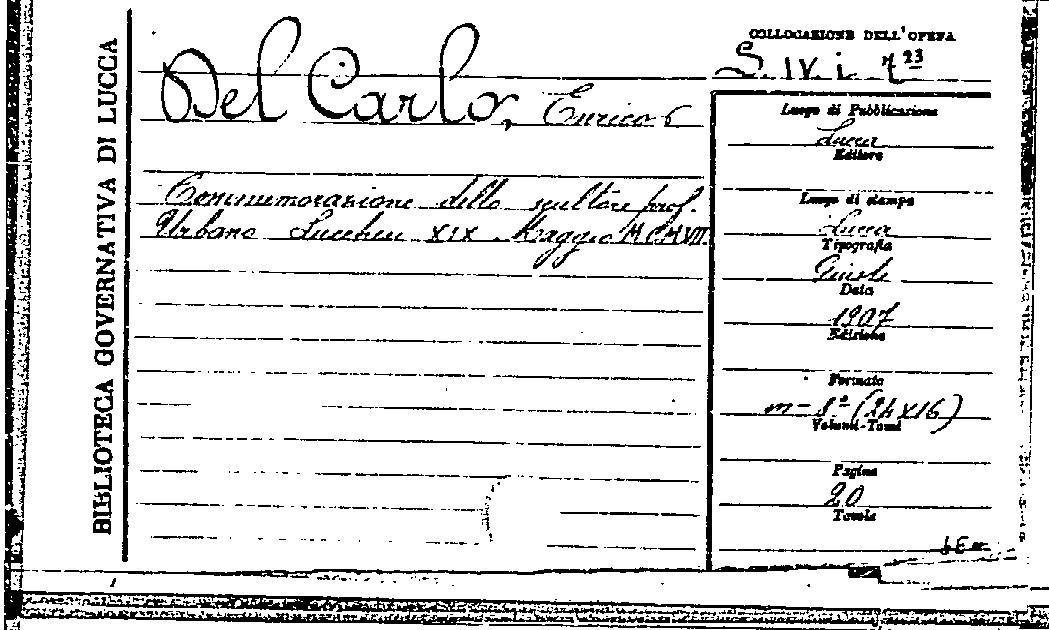 BIBLIOTECA GOVERNATIVA DI LUCCA
COLLOCAZIONE DELL'OPERA
S. IV. i. 723
Del Carlo, Enrico
Commemorazione dello scultore prof.
Urbano Lucchesi XIX Maggio MCMVII
Luogo di Pubblicazione
Lucca
Editore
Luogo di stampa
Lucca
Tipografia
Data
1907
Edizione
Formato
m-8º (24x16)
Volumi-Tomi
Pagine
20
Tavole